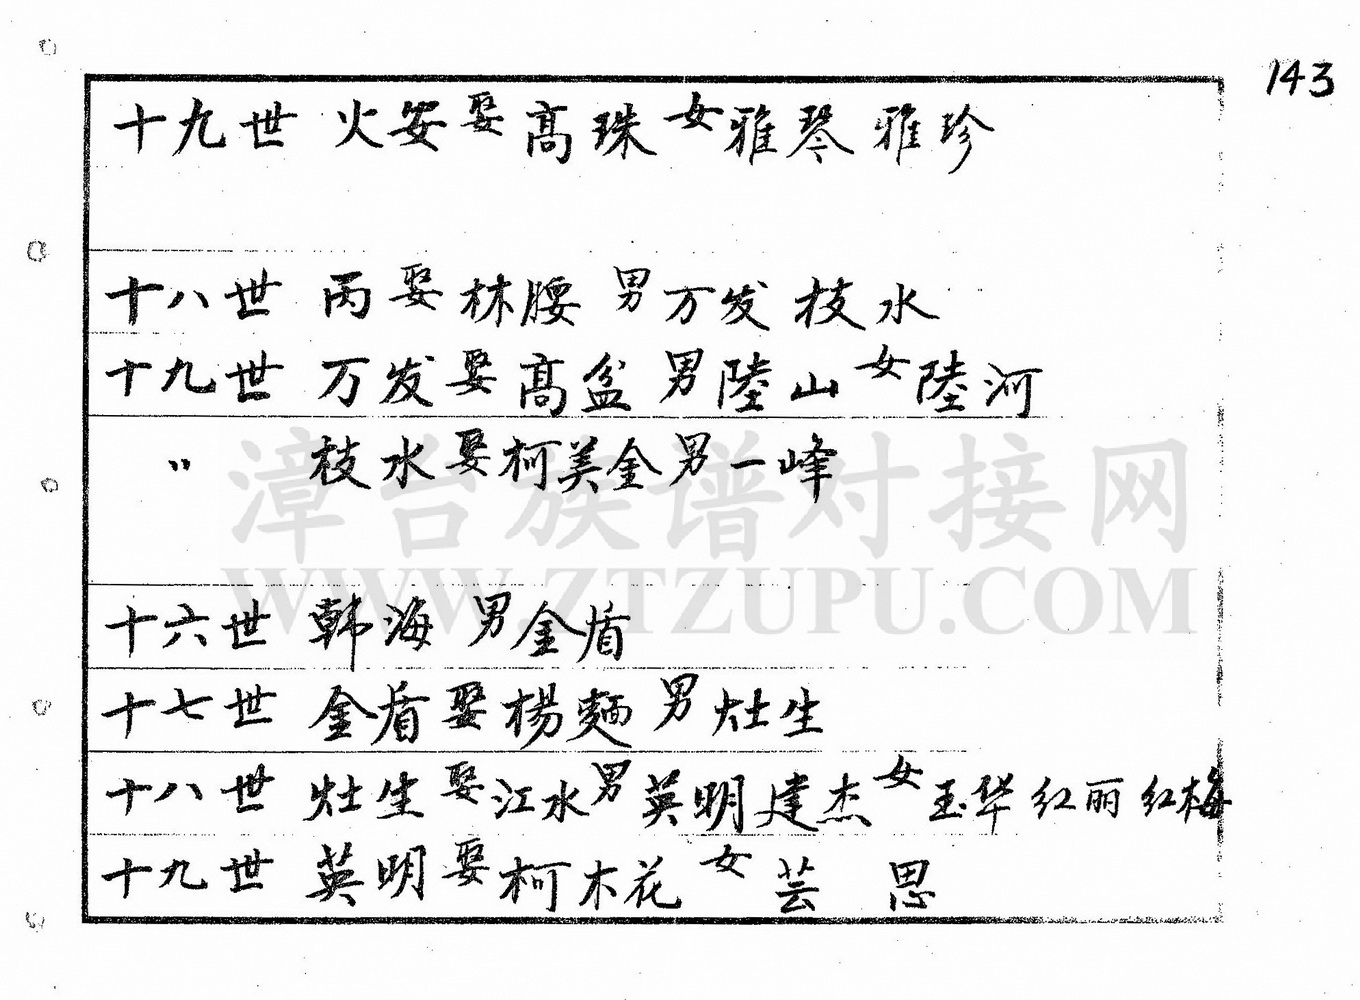 143
十九世 火安娶高珠女雅琴 雅珍
十八世 丙娶林腰 男万发 枝水
十九世 万发娶高盆 男陸山 女陸河
〃 枝水娶柯美金男一峰
漳台族谱对接网
WWW.ZTZUPU.COM
十六世 韩海 男金盾
十七世 金盾娶楊麵 男灶生
十八世 灶生娶江水男英明建杰女玉华红丽红梅
十九世 英明娶柯木花 女芸 思